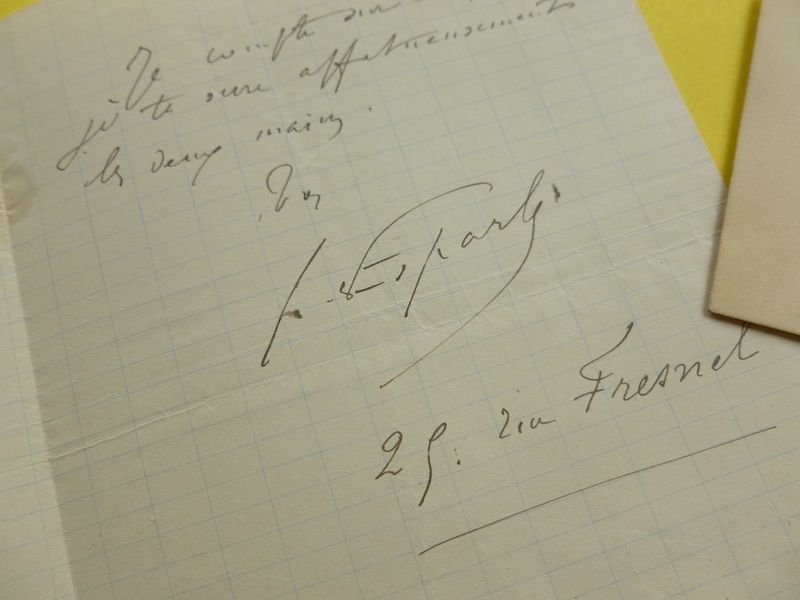 Je compte sur
je te serre affectueusement
les deux mains.
Ton
25. rue Fresnel